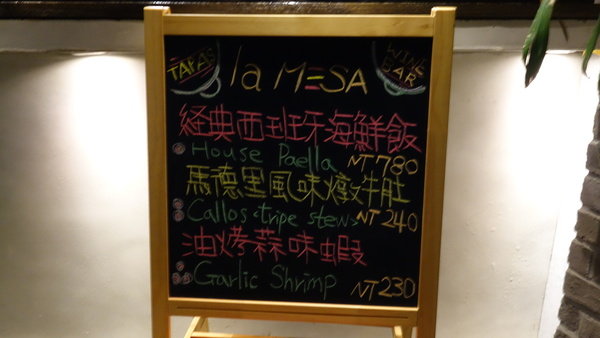 TAPAS
la MESA
WINE BAR
経典西班牙海鮮飯
House Paella NT780
馬德里風味燉牛肚
Callos <tripe stew> NT 240
油烤蒜味蝦
Garlic Shrimp NT230